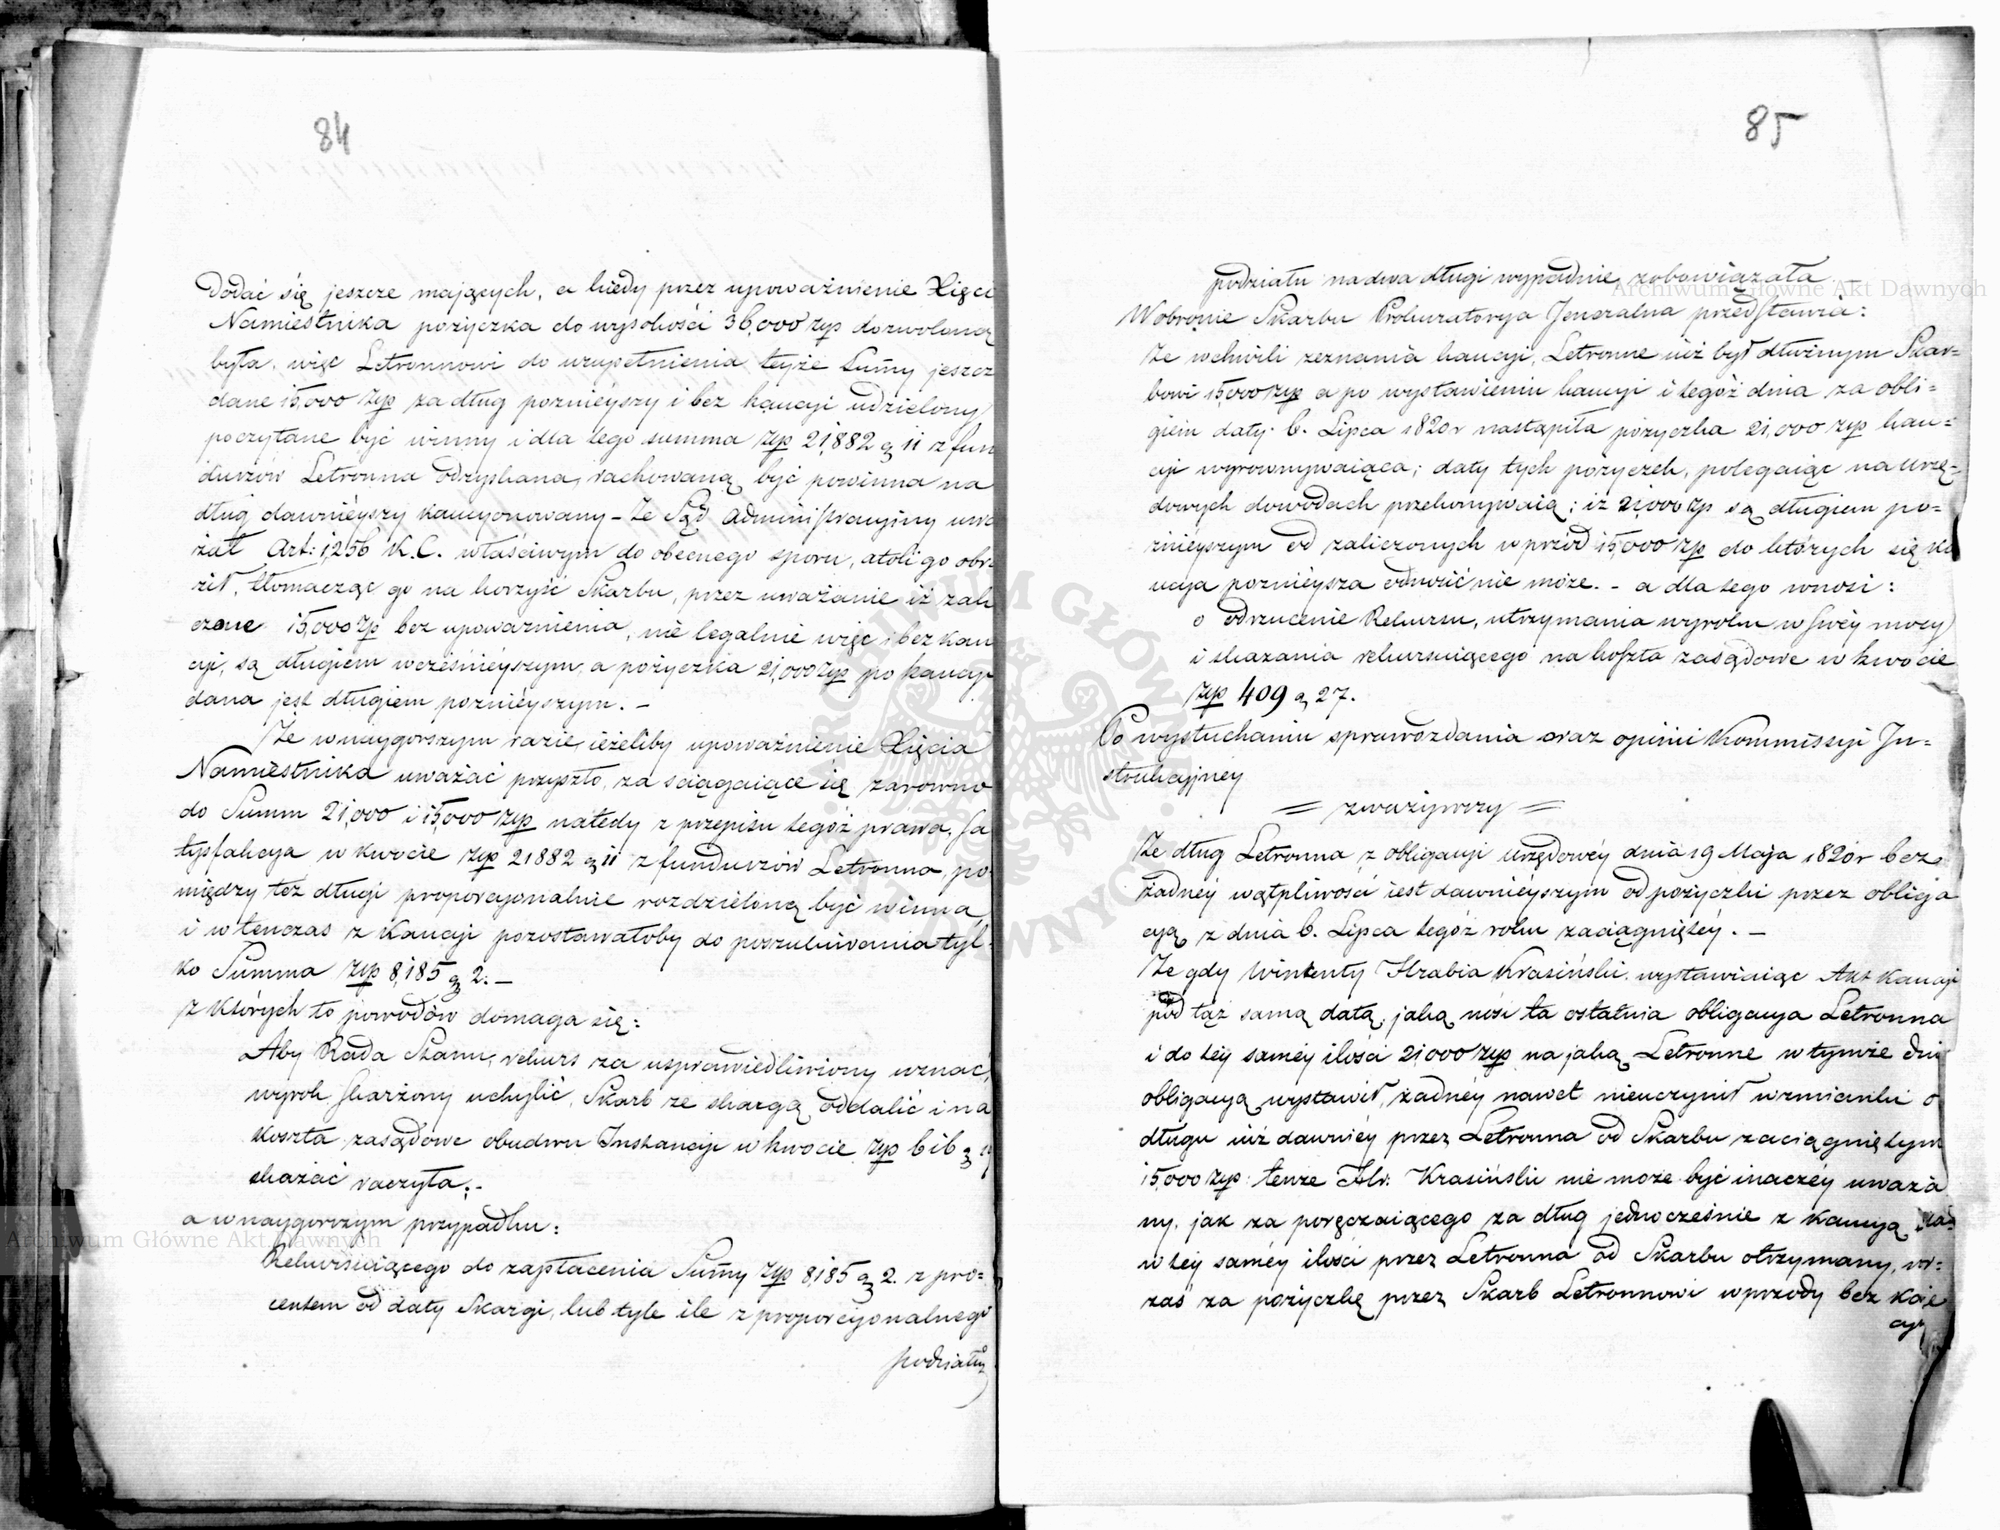 84
dodać się jeszcze mających, a kiedy przez upoważnienie Xięci
Namiestnika pożyczka do wysokości 36,000 złp dozwoloną
była, więc Letronnowi do uzupełnienia teyże Summy jeszcz
dane 15,000 złp za dług poznieyszy i bez kaucyi udzielony
poczytane być winny i dla tego summa złp 21,882 g 11 z fun
duszów Letronna odzyskana, rachowaną być powinna na
dług dawnieyszy kaucyonowany – Że Sąd Administracyiny uwa
żał Art: 1,256 K.C. właściwym do obecnego sporu, atoli go obr
ził, tłomacząc go na korzyść Skarbu, przez uważanie iż zali
czone 15,000 złp bez upoważnienia, nie legalnie więc i bez kau
cyi, są długiem wcześnieyszym, a pożyczka 21,000 złp po kaucyi
dana jest długiem poznieyszym. –
Że w naygorszym razie, ieżeliby upoważnienie Xięcia
Namiestnika uważać przyszło, za sciągaiące się zarowno
do Summ 21,000 i 15,000 złp natedy z przepisu tegóż prawa, Sa
tysfakcya w kwocie złp 21882 g 11 z funduszów Letronna, po
między też długi proporcyonalnie rozdzieloną być winna,
i w tenczas z Kaucyi pozostawałoby do poszukiwania tyl-
ko Summa złp 8,185 g 2. –
Z których to powodów domaga się:
Aby Rada Stanu, rekurs za usprawiedliwiony uznać,
wyrok skarżony uchylić, Skarb ze skargą oddalić i na
koszta zasądowe obudwu Instancyi w kwocie złp 616 g
skazać raczyła; –
a w naygorszym przypadku:
Rekursuiącego do zapłacenia Summy złp 8185 g 2. z pro-
centem od daty Skargi, lub tyle ile z proporcyonalnego
podziału
85
podziału na dwa długi wypadnie, zobowiązała –
W obronie Skarbu Prokuratorya Jeneralna przedstawia:
Że w chwili zeznania kaucyi, Letronne iuż był dłużnym Skar-
bowi 15,000 złp a po wystawieniu kaucyi i tegóż dnia za obli-
giem daty 6. Lipca 1820 r nastąpiła pożyczka 21,000 złp kau-
cyi wyrownywaiąca; daty tych pożyczek, polegaiąc na urzę-
dowych dowodach przekonywaią; iż 21,000 złp są długiem po-
znieyszym od zaliczonych wprzód 15,000 złp do których się ka
ucya poznieysza odnosić nie może. – a dla tego wnosi:
o odrzucenie Rekursu, utrzymania wyroku w swéy mocy
i skazania rekursuiącego na koszta zasądowe w kwocie
złp 409 g 27.
Po wysłuchaniu sprawozdania oraz opinii Kommissyi In-
strukcyjney
= zważywszy =
Że dług Letronna z obligacyi urzędowéy dnia 19 Maja 1820 r bez
żadney wątpliwości iest dawnieyszym od pożyczki przez obliga
cyą z dnia 6. Lipca tegóż roku zaciągniętéy. –
Że gdy Wintenty Hrabia Krasiński, wystawiaiąc Akt Kaucyi
pod tąż samą datą, jaką nosi ta ostatnia obligacya Letronna
i do téy saméy ilości 21,000 złp na jaką Letronne w tymże dniu
obligacyą wystawił, żadnéy nawet nieuczynił wzmianki o
długu iuż dawniéy przez Letronna od Skarbu zaciągniętym
15,000 złp: tenże Hr. Krasiński nie może być inaczéy uważa
ny, jak za poręczaiącego za dług jednocześnie z Kaucyą
w téy saméy ilości przez Letronna od Skarbu otrzymany,
zaś za pożyczkę przez Skarb Letronnowi wprzody bez
cyi
Archiwum Główne Akt Dawnych